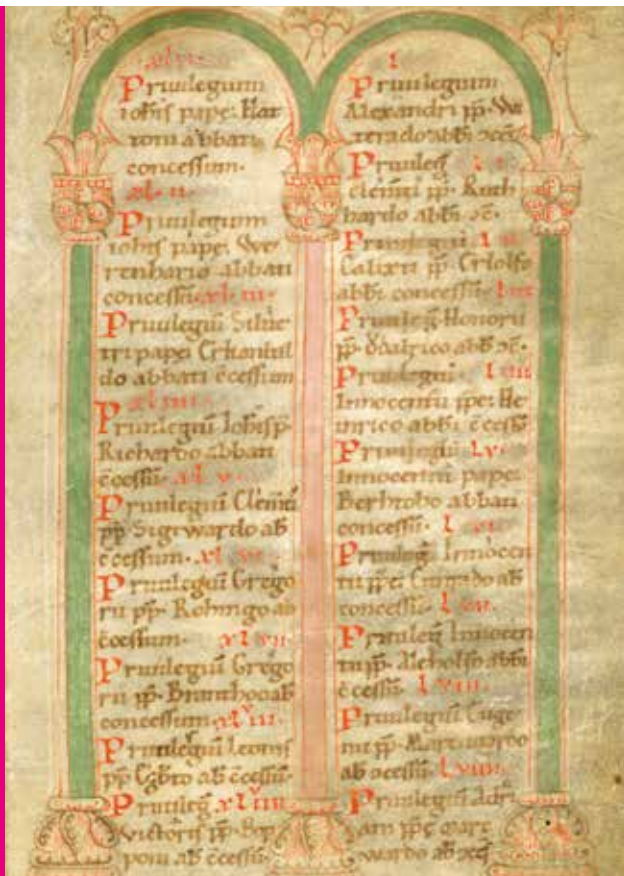 Priuilegium
iohis pape. Hat
toni abbati
concessum.
xl. ii.
Priuilegium
iohis pape. We
renhario abbati
concessū. xl. iii.
Priuilegiū Silue
tri papę
do abbati ↄcessum
xl. iiii.
Priuilegiū Iohis p̄.
Richardo abbati
ↄcessū. xl. v.
Priuilegiū
pp̄. Sigewardo ab̄
ↄcessum. xl. vi.
Priuilegiū Grego
rii pp̄. Rohingo ab̄
ↄcessum. xl. vii.
Priuilegiū Grego
rii pp̄. ab̄
concessum. xl. viii.
Priuilegiū Leonis
pp̄. Egb̄to ab̄ ↄcessū.
Priuileḡ. xl. viiii.
Victoris pp̄. Bop
poni ab̄ ↄcessū.
l
Priuilegium
Alexandri pp̄.
abb̄i
Priuileḡ
clem̄ti pp̄. Ruth
hardo abb̄i
Priuilegiū
Calixti pp̄. Erlolfo
abb̄i concessū.
Priuileḡ. Honorii
pp̄. Ǒdalrico ab̄b
Priuilegiū. l. iiii
Innocentii ppę. He
inrico abb̄i ↄcessū
Priuilegiū l. v.
Innocentii papę.
Berhtoho abbati
concessū. l. vi.
Priuileḡ Innocen
tii ppę. Cunrado ab̄
concessū. l. vii.
Priuileḡ Innocen
tii pp̄. Aleholfo abb̄i
ↄcessū. l. viii.
Priuilegiū Euge
nii pp̄. Marcwardo
ab̄ ↄcessū. l. viiii.
Priuilegiū Adri
ani ppę Marc
wardo ab̄